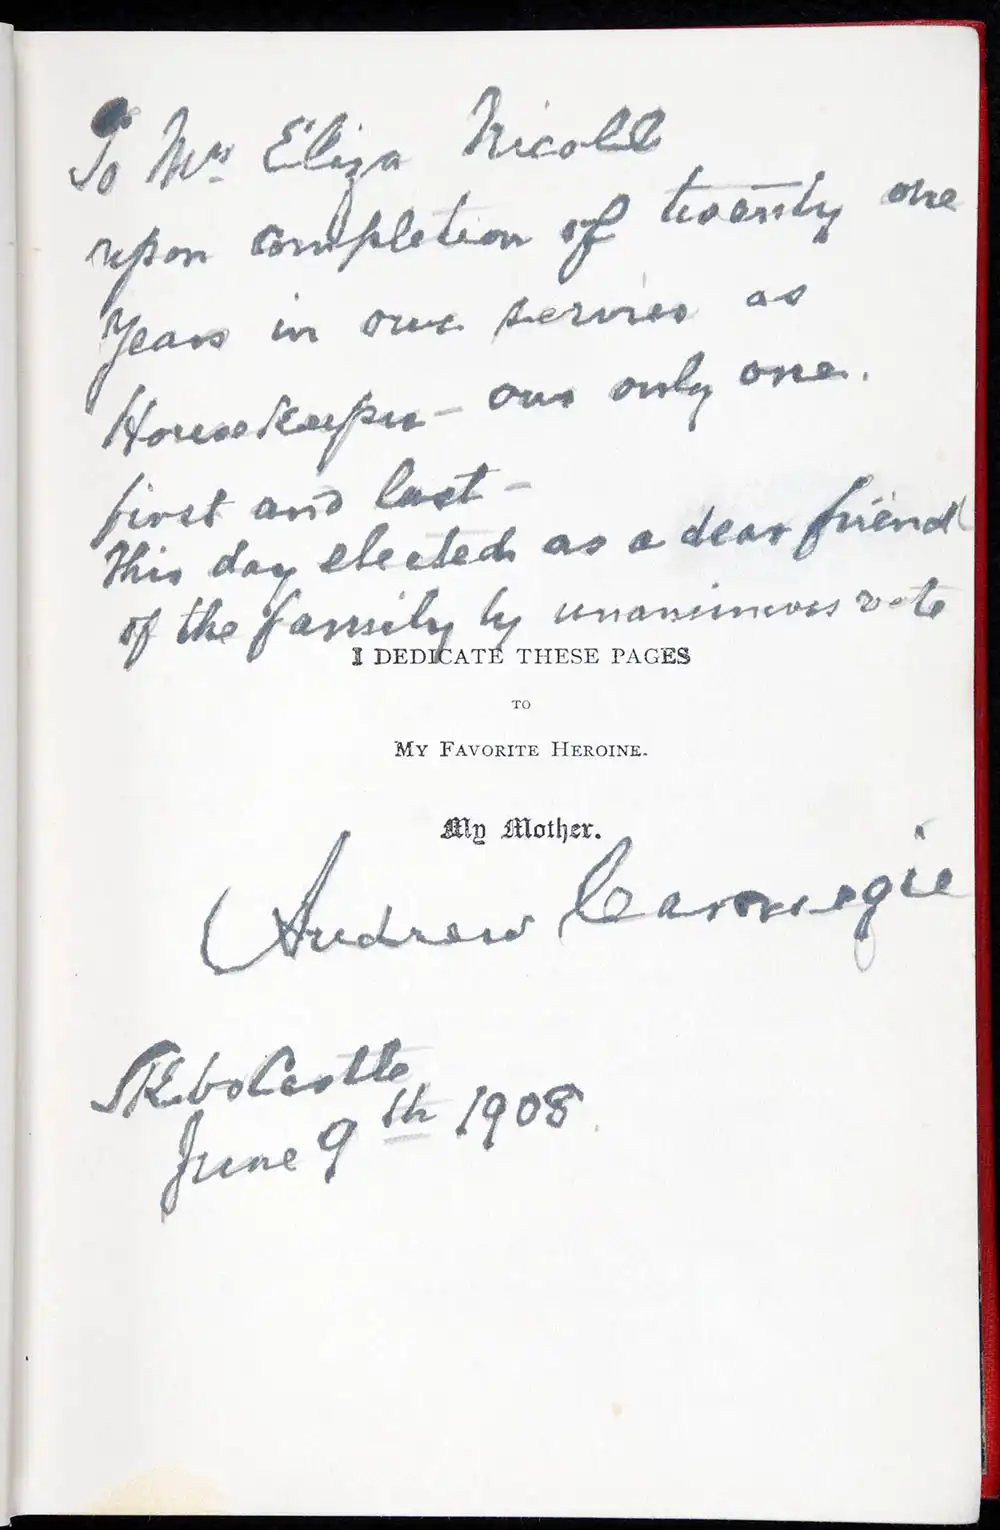 To Mrs. Eliza Nicoll
upon completion of twenty one
years in our service as
Housekeeper – our only one.
first and last –
This day elected as a dear friend
of the family by unanimous vote
I DEDICATE THESE PAGES
TO
MY FAVORITE HEROINE.
My Mother.
Andrew Carnegie
Skibo Castle
June 9th 1908